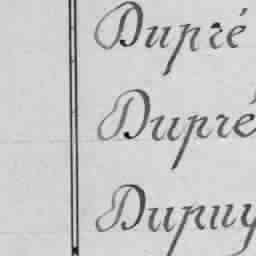 Dupré
Dupré
Dupuy